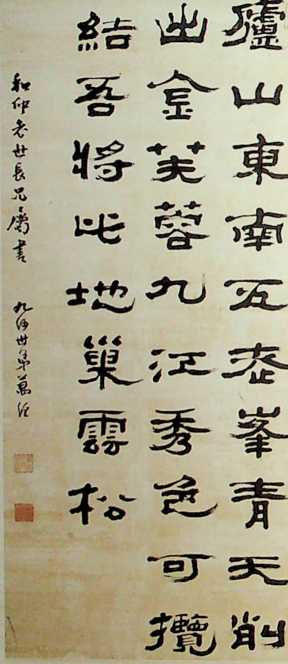 廬山東南五老峯青天削
出金芙蓉九江秀色可攬
結吾將此地巢雲松
和仰老世長兄屬書 九沙世弟萬經